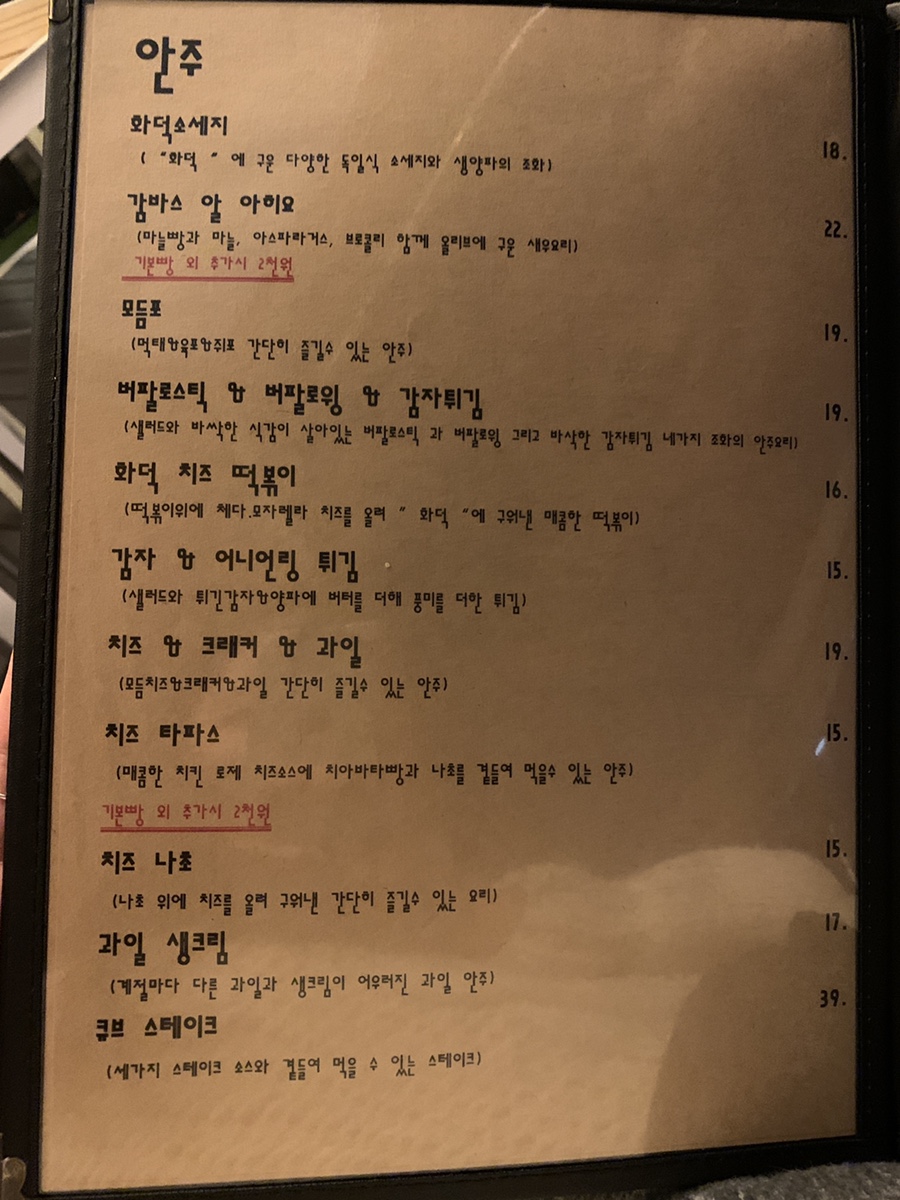 안주
화덕소세지
( "화덕 " 에 구운 다양한 독일식 소세지와 생양파의 조화) 18.
감바스 알 아히요
(마늘빵과 마늘, 아스파라거스, 브로콜리 함께 올리브에 구운 새우요리) 22.
기본빵 외 추가시 2천원
모듬포
(먹태&육포&쥐포 간단히 즐길수 있는 안주) 19.
버팔로스틱 & 버팔로윙 & 감자튀김
(샐러드와 바싹한 식감이 살아있는 버팔로스틱 과 버팔로윙 그리고 바삭한 감자튀김 네가지 조화의 안주요리) 19.
화덕 치즈 떡볶이
(떡볶이위에 체다.모자렐라 치즈를 올려 " 화덕 "에 구워낸 매콤한 떡볶이) 16.
감자 & 어니언링 튀김
(샐러드와 튀긴감자&양파에 버터를 더해 풍미를 더한 튀김) 15.
치즈 & 크래커 & 과일
(모듬치즈&크래커&과일 간단히 즐길수 있는 안주) 19.
치즈 타파스
(매콤한 치킨 로제 치즈소스에 치아바타빵과 나초를 곁들여 먹을수 있는 안주) 15.
기본빵 외 추가시 2천원
치즈 나초
(나초 위에 치즈를 올려 구워낸 간단히 즐길수 있는 요리) 15.
과일 생크림
(계절마다 다른 과일과 생크림이 어우러진 과일 안주) 17.
큐브 스테이크
(세가지 스테이크 소스와 곁들여 먹을 수 있는 스테이크) 39.